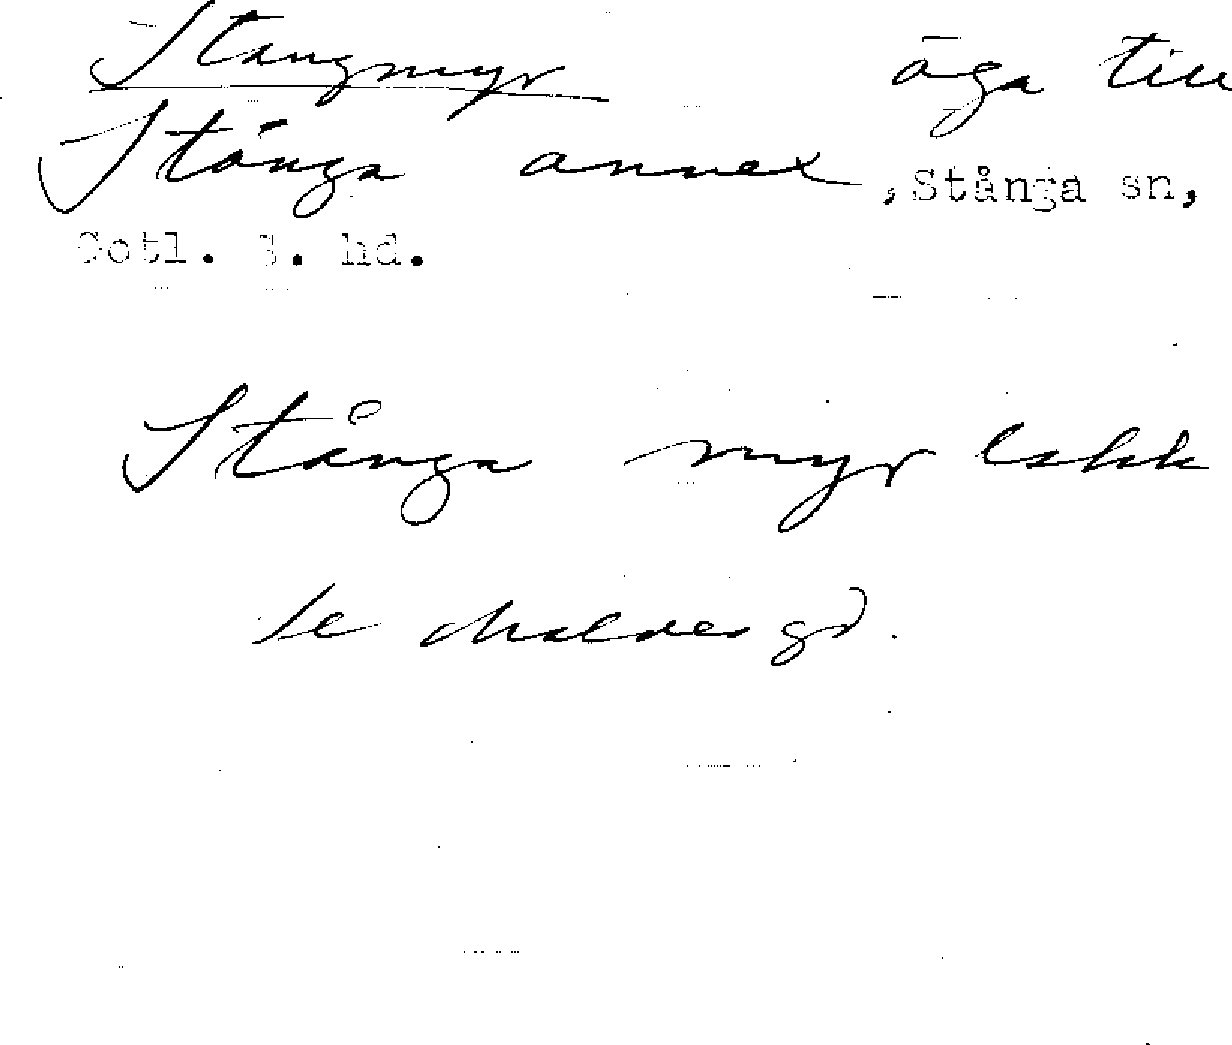 Stangmyr äga till
Stånga annex, Stånga sn,
Gotl. S. hd.
Stånga myr
se Malder gd.